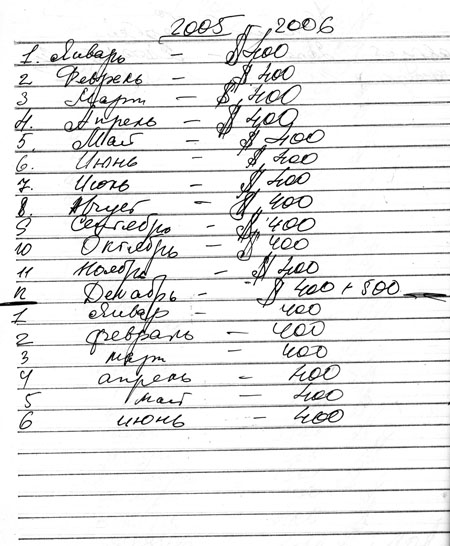 2005 2006
1. Январь - $ 400
2 Феврель - $ 400
3 Март - $ 400
4. Апрель - $ 400
5. Май - $ 400
6. Июнь - $ 400
7. Июнь - $ 400
8. Август - $ 400
9 Сентябрь - $ 400
10 Октябрь - $ 400
11 Ноябрь - $ 400
12 Декабрь - $ 400 + 500
1 Январ - 400
2 февраль - 400
3 март - 400
4 апрель - 400
5 май - 400
6 июнь - 400